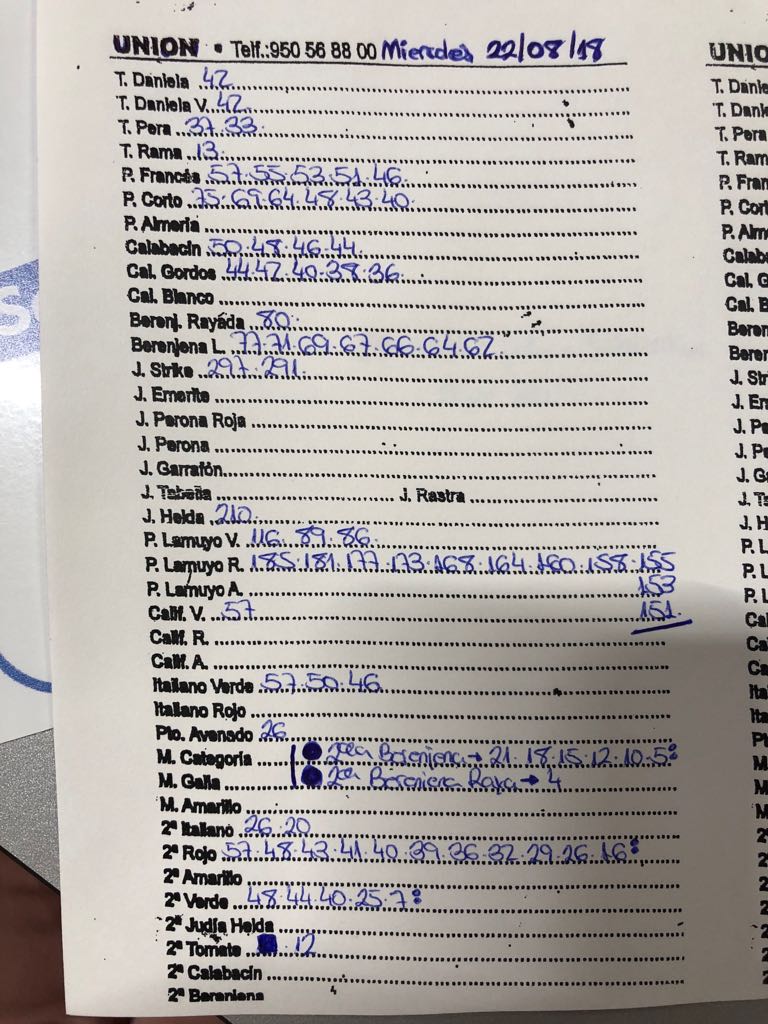 UNION • Telf.:950 56 88 00 Miercoles 22/08/18
T. Daniela 42
T. Daniela V. 42
T. Pera 37.33
T. Rama 13
P. Francés 57.55.53.51.46
P. Corto 75.69.64.48.43.40
P. Almería
Calabacín 50.48.46.44
Cal. Gordos 44.42.40.38.36
Cal. Blanco
Berenj. Rayada 80
Berenjena L. 77.71.69.67.66.64.62
J. Strike 297.291
J. Emerite
J. Perona Roja
J. Perona
J. Garrafón
J. Tabella J. Rastra
J. Helda 210
P. Lamuyo V. 116.89.86
P. Lamuyo R. 185.181.177.173.168.164.160.158.155
P. Lamuyo A. 153
Calif. V. 57 151
Calif. R.
Calif. A.
Italiano Verde 57.50.46
Italiano Rojo
Pto. Asado 26
M. Categoría Berenjena → 21.18.15.12.10.5
M. Galia Raya → 4
M. Amarillo
2ª Italiano 26.20
2ª Rojo 57.48.43.41.40.39.36.32.29.26.16
2ª Amarillo
2ª Verde 48.44.40.25.7
2ª Judía Helda
2ª Tomate 12
2ª Calabacín
2ª Berenjena
UNIO
T. Danie
T. Dani
T. Pera
T. Ram
P. Fran
P. Cort
P. Alm
Calaba
Cal. G
Cal. B
Beren
Beren
J. Str
J. En
J. Pe
J. Pe
J. Ga
J. Ta
J. H
P. L
P. L
P. L
Cal
Ca
Ca
Ita
Ita